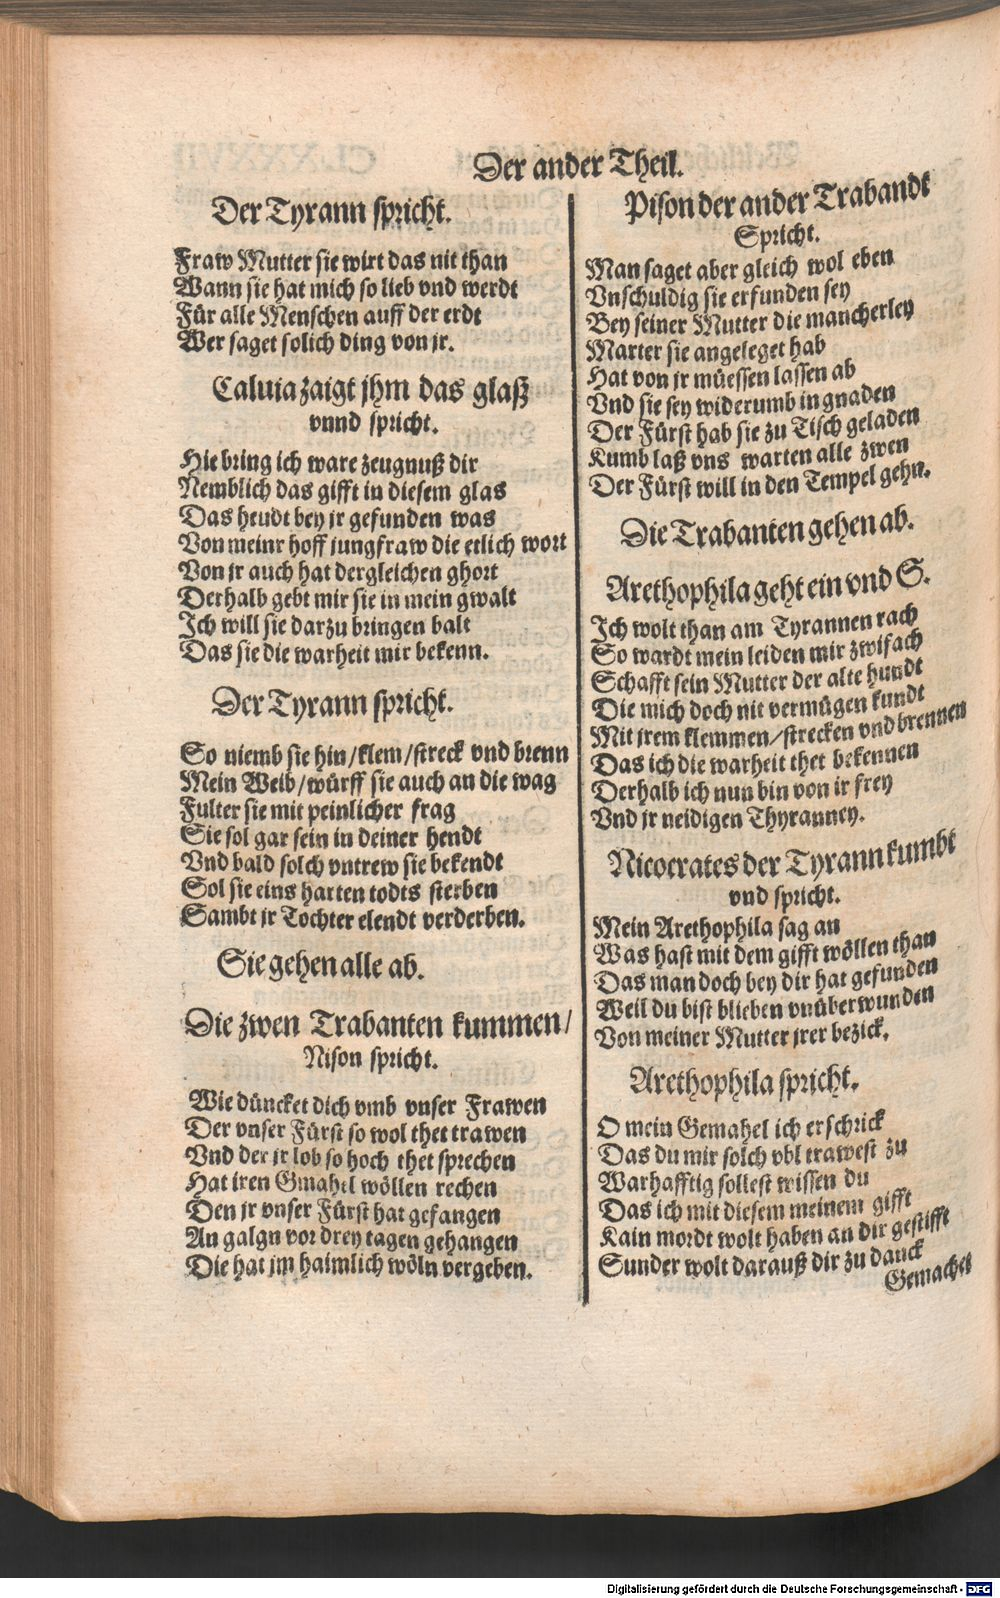 Der ander Theil.
Der Tyrann spricht.
Fraw Mutter sie wirt das nit than
Wann sie hat mich so lieb vnd werdt
Für alle Menschen auff der erdt
Wer saget solich ding von jr.
Caluia zaigt jhm das glaß
vnnd spricht.
Hie bring ich ware zeugnuß dir
Nemblich das gifft in diesem glas
Das heudt bey jr gefunden was
Von meinr hoff jungfraw die etlich wort
Von jr auch hat dergleichen ghort
Derhalb gebt mir sie in mein gwalt
Ich will sie darzu bringen balt
Das sie die warheit mir bekenn.
Der Tyrann spricht.
So niemb sie hin/klem/streck vnd brenn
Mein Weib/würff sie auch an die wag
Fulter sie mit peinlicher frag
Sie sol gar sein in deiner hendt
Vnd bald solch vntrew sie bekendt
Sol sie eins harten todts sterben
Sambt jr Tochter elendt verderben.
Sie gehen alle ab.
Die zwen Trabanten kummen/
Nison spricht.
Wie düncket dich vmb vnser Frawen
Der vnser Fürst so wol thet trawen
Vnd der jr lob so hoch thet sprechen
Hat iren Gmahel wöllen rechen
Den jr vnser Fürst hat gefangen
An galgn vor drey tagen gehangen
Die hat jm haimlich wöln vergeben.
Pison der ander Trabandt
Spricht.
Man saget aber gleich wol eben
Vnschuldig sie erfunden sey
Bey seiner Mutter die mancherley
Marter sie angeleget hab
Hat von jr müessen lassen ab
Vnd sie sey widerumb in gnaden
Der Fürst hab sie zu Tisch geladen
Kumb laß vns warten alle zwen
Der Fürst will in den Tempel gehn.
Die Trabanten gehen ab.
Arethophila geht ein vnd S.
Ich wolt than am Tyrannen rach
So wardt mein leiden mir zwifach
Schafft sein Mutter der alte hundt
Die mich doch nit vermügen kundt
Mit jrem klemmen/strecken vnd brennen
Das ich die warheit thet bekennen
Derhalb ich nun bin von ir frey
Vnd jr neidigen Thyranney.
Nicocrates der Tyrann kumbt
vnd spricht.
Mein Arethophila sag an
Was hast mit dem gifft wöllen than
Das man doch bey dir hat gefunden
Weil du bist blieben vnüberwunden
Von meiner Mutter jrer bezick.
Arethophila spricht.
O mein Gemahel ich erschrick
Das du mir solch vbl trawest zu
Warhafftig sollest wissen du
Das ich mit diesem meinem gifft
Kain mordt wolt haben an dir gestifft
Sunder wolt darauß dir zu danck
Gemachet
Digitalisierung gefördert durch die Deutsche Forschungsgemeinschaft - DFG